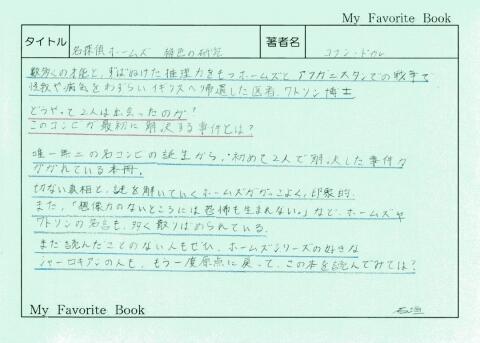 My Favorite Book
タイトル 名探偵ホームズ 緋色の研究 著者名 コナン・ドイル
数多くの才能と、ずばぬけた推理力をもつホームズと アフガニスタンでの戦争で
怪我や病気をわずらい イギリスへ帰還した医者 ワトソン博士
どうやって2人は出会ったのか!
このコンビが最初に解決する事件とは?
唯一無二の名コンビの誕生から、初めて2人で解決した事件が
かかれている本冊。
切ない真相と、謎を解いていくホームズがかっこよく、印象的。
また、「想像力のないところには恐怖も生まれない。」など、ホームズや
ワトソンの名言も、多く散りばめられている。
まだ読んだことのない人もぜひ、ホームズシリーズの好きな
シャーロキアンの人も、もう一度原点に戻って、この本を読んでみては?
My Favorite Book